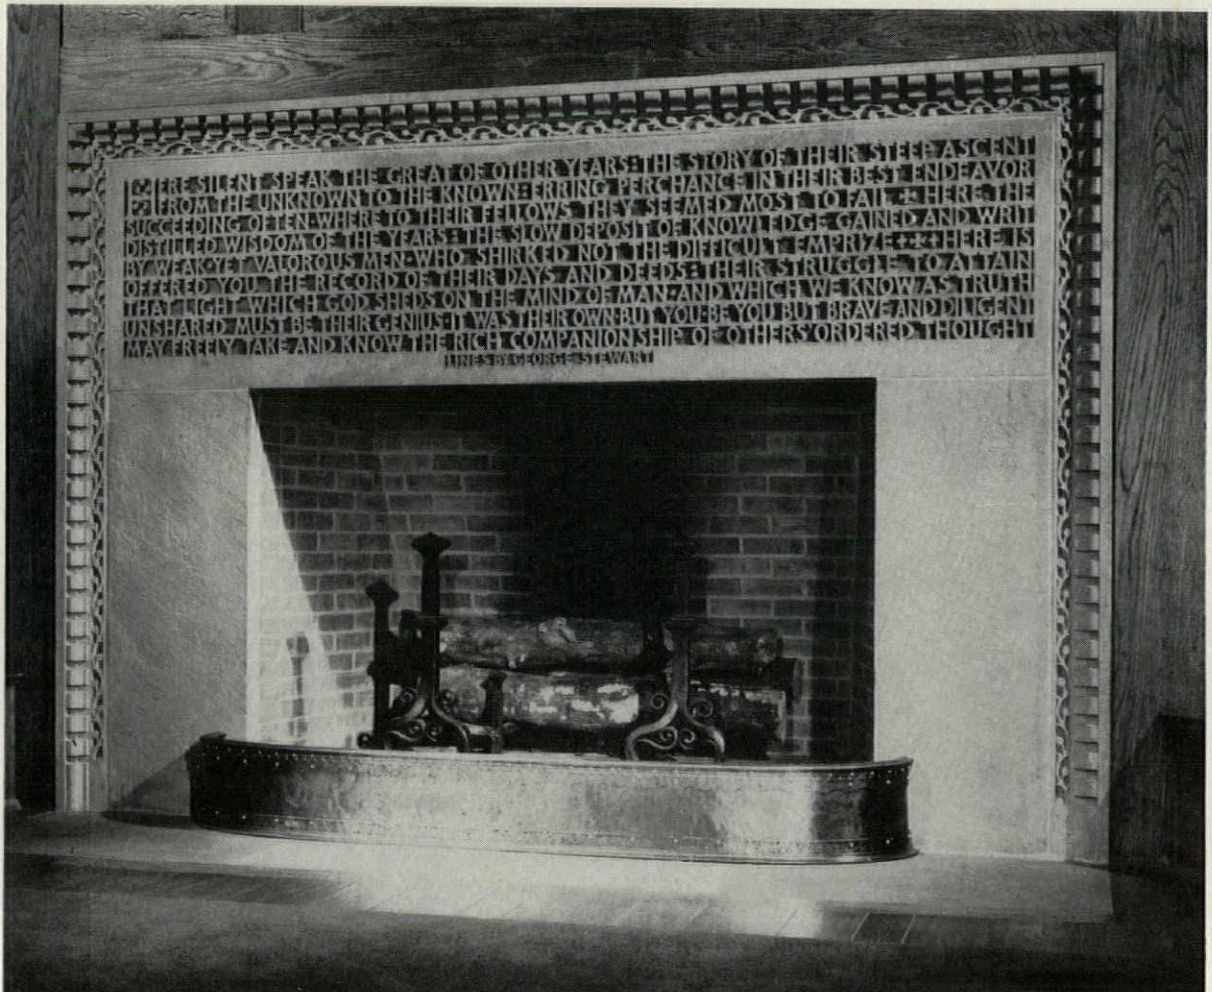 HERE SILENT SPEAK THE GREAT OF OTHER YEARS: THE STORY OF THEIR STEEP ASCENT
FROM THE UNKNOWN TO THE KNOWN: ERRING PERCHANCE IN THEIR BEST ENDEAVOR
SUCCEEDING OFTEN·WHERE TO THEIR FELLOWS THEY SEEMED MOST TO FAIL + HERE THE
DISTILLED WISDOM OF THE YEARS: THE SLOW DEPOSIT OF KNOWLEDGE GAINED AND WRIT
BY WEAK·YET VALOROUS MEN·WHO SHIRKED NOT THE DIFFICULT EMPRIZE+++HERE IS
OFFERED YOU THE RECORD OF THEIR DAYS AND DEEDS: THEIR STRUGGLE TO ATTAIN
THAT LIGHT WHICH GOD SHEDS ON THE MIND OF MAN·AND WHICH WE KNOW AS TRUTH
UNSHARED MUST BE THEIR GENIUS·IT WAS THEIR OWN·BUT YOU·BE YOU BUT BRAVE AND DILIGENT
MAY FREELY TAKE AND KNOW THE RICH COMPANIONSHIP OF OTHERS' ORDERED THOUGHT
LINES BY GEORGE STEWART